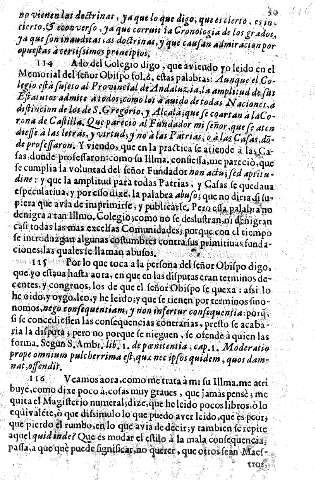 no vienen las doctrinas, ya que lo que digo, que es cierto, es in-
cierto, & è converso, ya que corruti la Cronologia de los grados,
ya que son inauditas las doctrinas, y que causan admiracion por
opuestas à certissimos principios.
114 A lo del Colegio digo, que aviendo yo leido en el
Memorial del señor Obispo fol. 6, estas palabras: Aunque el Co-
legio està sujeto al Provincial de Andaluzia, la amplitud de sus
Estatutos admite à todos; como los à avido de todas Naciones, à
distincion de los de S. Gregorio, y Alcalà, que se coartan à la Co-
rona de Castilla. Que pareciò al Fundador mi señor, que se aten
diesse à las letras, y virtud, y no à las Patrias, ò à las Casas, dõ-
de professaron. Y viendo, que en la practica se atiende à las Ca-
sas, donde professaron: como su Illma. confiessa, me pareciò, que
se cumplia la voluntad del señor Fundador non actu, sed aptitu-
dine: y que la amplitud para todas Patrias, y Casas se quedava
especulativa, y por esso dixe, la palabra abuso; que no diria si su-
piera que avia de imprimirse, y publicarse. Pero essa palabra no
denigra à tan Illmo. Colegio; como no se deslustran, ni denigran
casi todas las mas excelsas Comunidades; porque con el tiempo
se introduzgan algunas costumbres contra sus primitivas funda-
ciones; las quales se llaman abusos.
115 Por lo que toca à la persona del señor Obispo digo,
que yo estava hasta aora, en que en las disputas eran terminos de-
centes, y congruos, los de que el señor Obispo se quexa: assi lo
he oido, y oygo, leo, y he leido; y que se tienen por terminos sino-
nomos, nego consequentiam, y non infertur consequentia: porq̃
si se concediessen las consequencias contrarias, presto se acaba-
ria la disputa; pero no porque se nieguen, se ofende à quien las
forma. Segun S. Ambr. lib. 1. de pœnitentia, cap. 1. Moderatio
prope omnium pulcherrima est, quæ nec ipsos quidem, quos dam-
nat, offendit.
116 Veamos aora, como me trata à mi su Illma. me atri
buye, como dize poco à, cosas muy graves, que jamàs pensè; me
quita el Magisterio numeral; dize, que he leido pocos libros, ò lo
equivalẽte, ò que dissimulo lo que puedo aver leido, que es peor;
que pierdo el rumbo, en lo que avia de decir; y tambien se repite
aquel quid inde? Que es mudar el estilo à la mala consequencia,
passa, à que què puede significar, no querer, que otros sean Maes-
tros